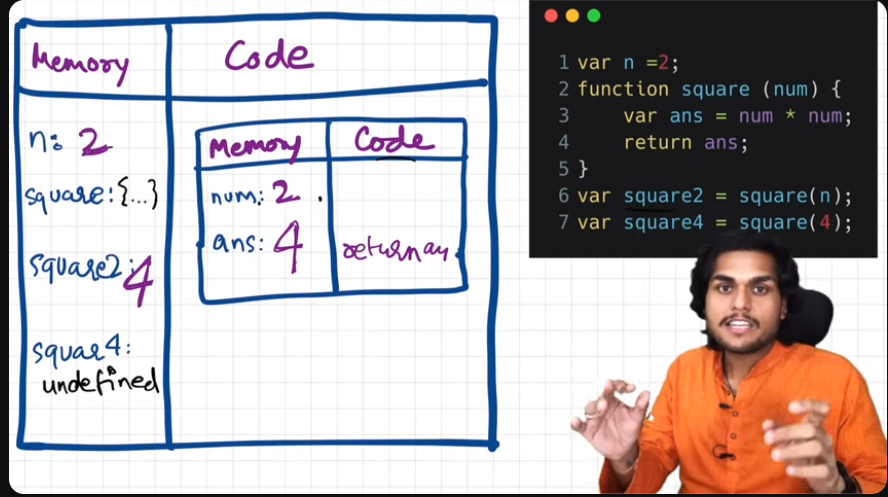 Memory
Code
n: 2
square: {...}
square2: 4
squar4:
undefined
Memory
Code
num: 2
ans: 4
return an
1 var n =2;
2 function square (num) {
3 var ans = num * num;
4 return ans;
5 }
6 var square2 = square(n);
7 var square4 = square(4);